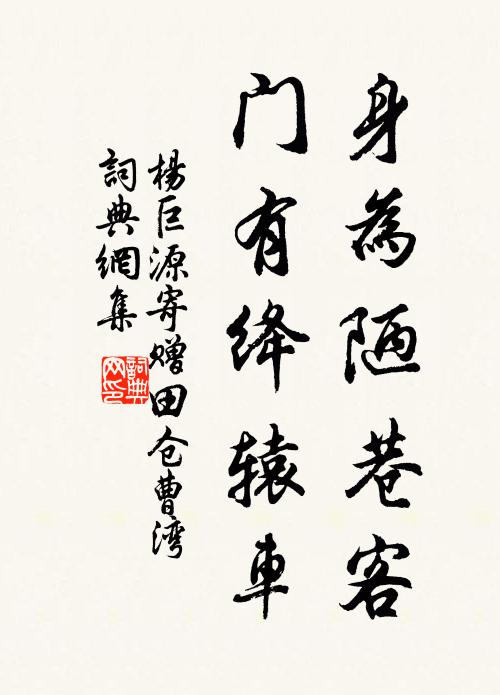 身為陋巷客
门有绛辕車
楊巨源寄赠田仓曹湾
詞典網集
詞典網印